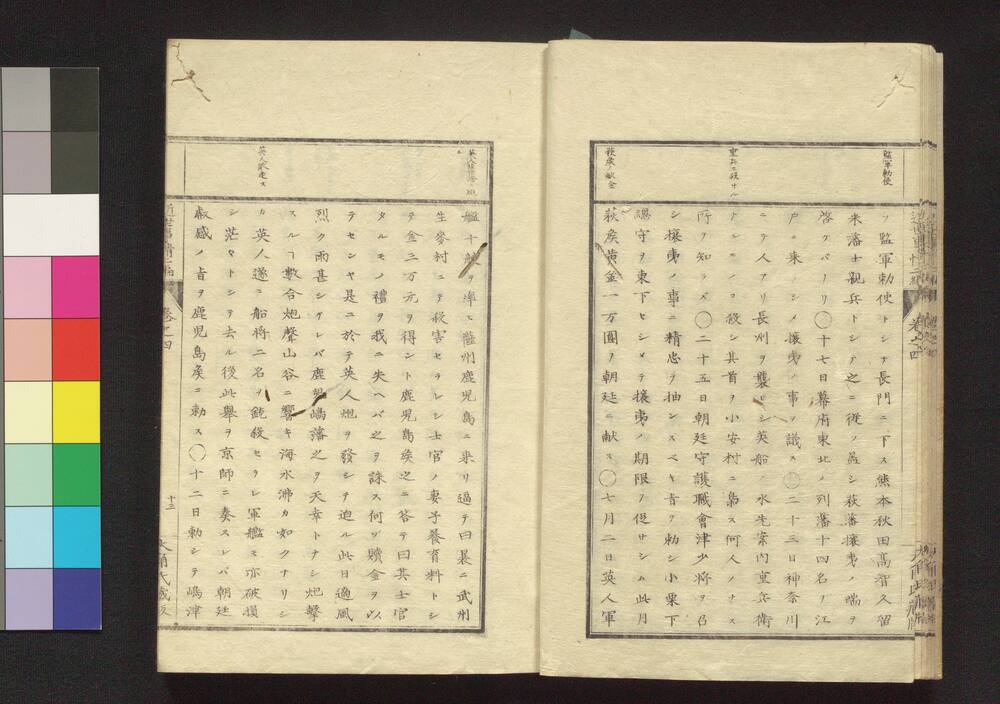 監軍勅使
ヲ監軍勅使トシテ長門ニ下ス熊本秋田高智久留
米藩士親兵トシテ之ニ従フ蓋シ萩藩攘夷ノ端ヲ
啓クバナリ◯十七日幕府東北ノ列藩十四名ヲ江
戸ニ来ラシメ攘夷ノ事ヲ議ス◯二十三日神奈川
ニテ人アリ長州ヲ襲ヒシ英船ノ水先案内重兵衛
ナルモノヲ殺シ其首ヲ小安村ニ梟ス何人ノナス
所ヲ知ラズ◯二十五日朝廷守護職會津少将ヲ召
シ攘夷ノ事ニ精忠ヲ抽ンズベキ旨ヲ勅シ小栗下
總守ヲ東下セシメテ攘夷ノ期限ヲ促サシム此月
萩侯ノ献金
萩侯黄金一万圓ヲ朝廷ニ献ス◯七月二日英人軍
艦十艘ヲ率ヒ薩州鹿児島ニ来リ逼テ曰曩ニ武州
生麥村ニテ殺害セラレシ士官ノ妻子養育料トシ
テ金三万元ヲ得ント鹿児島侯之ニ答テ曰其士官
タルモノ禮ヲ我ニ失ヘバ之ヲ誅ス何ゾ贖金ヲ以
テセンヤ是ニ於テ英人炮ヲ發シテ迫ル此日適風
烈ク雨甚シケレバ鹿児嶋藩之ヲ天幸トナシ炮撃
英人敗走ス
スルヿ數合炮聲山谷ニ響キ海水沸カ如クナリシ
カ英人遂ニ船将二名ヲ銃殺セラレ軍艦モ亦破損
シ茫々トシテ去ル後此舉ヲ京師ニ奏スレバ朝廷
叡感ノ旨ヲ鹿児島侯ニ勅ス◯十二日勅シテ嶋津
巻之四
十三